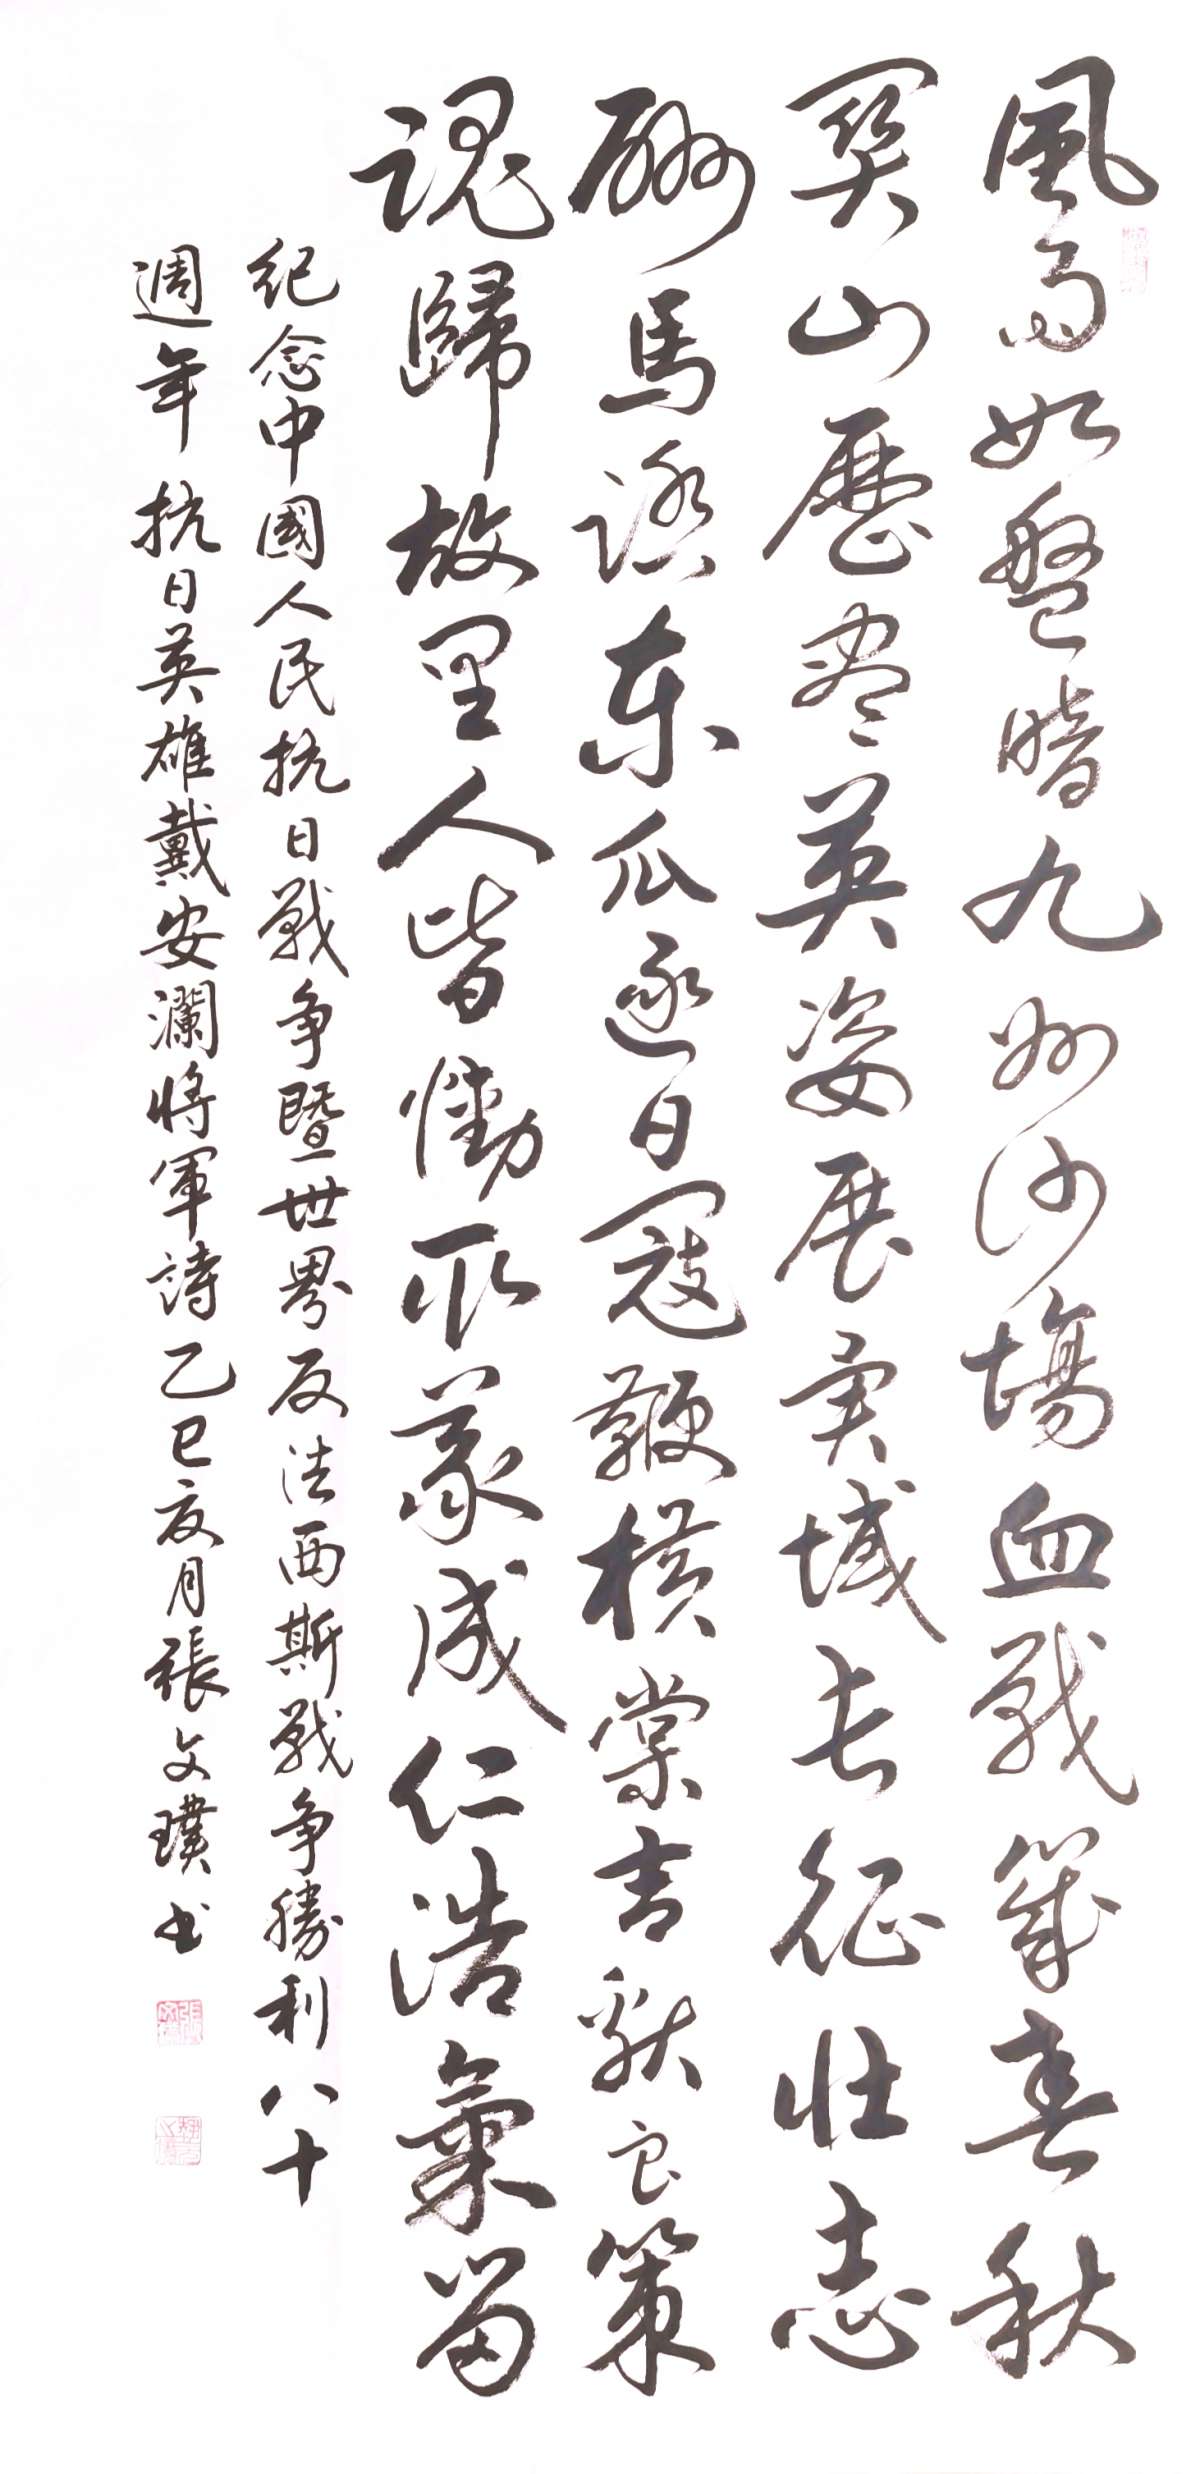 風雨如盤暗九州沙場血戰幾春秋
關山歷盡英姿展異域長征壯志
酬馬踏東瓜逐日寇鞭橫棠吉獻良策
魂歸故里人皆慟取義成仁浩氣留
紀念中國人民抗日戰争暨世界反法西斯戰争勝利八十
週年抗日英雄戴安瀾將軍詩乙巳夏月張文璞书